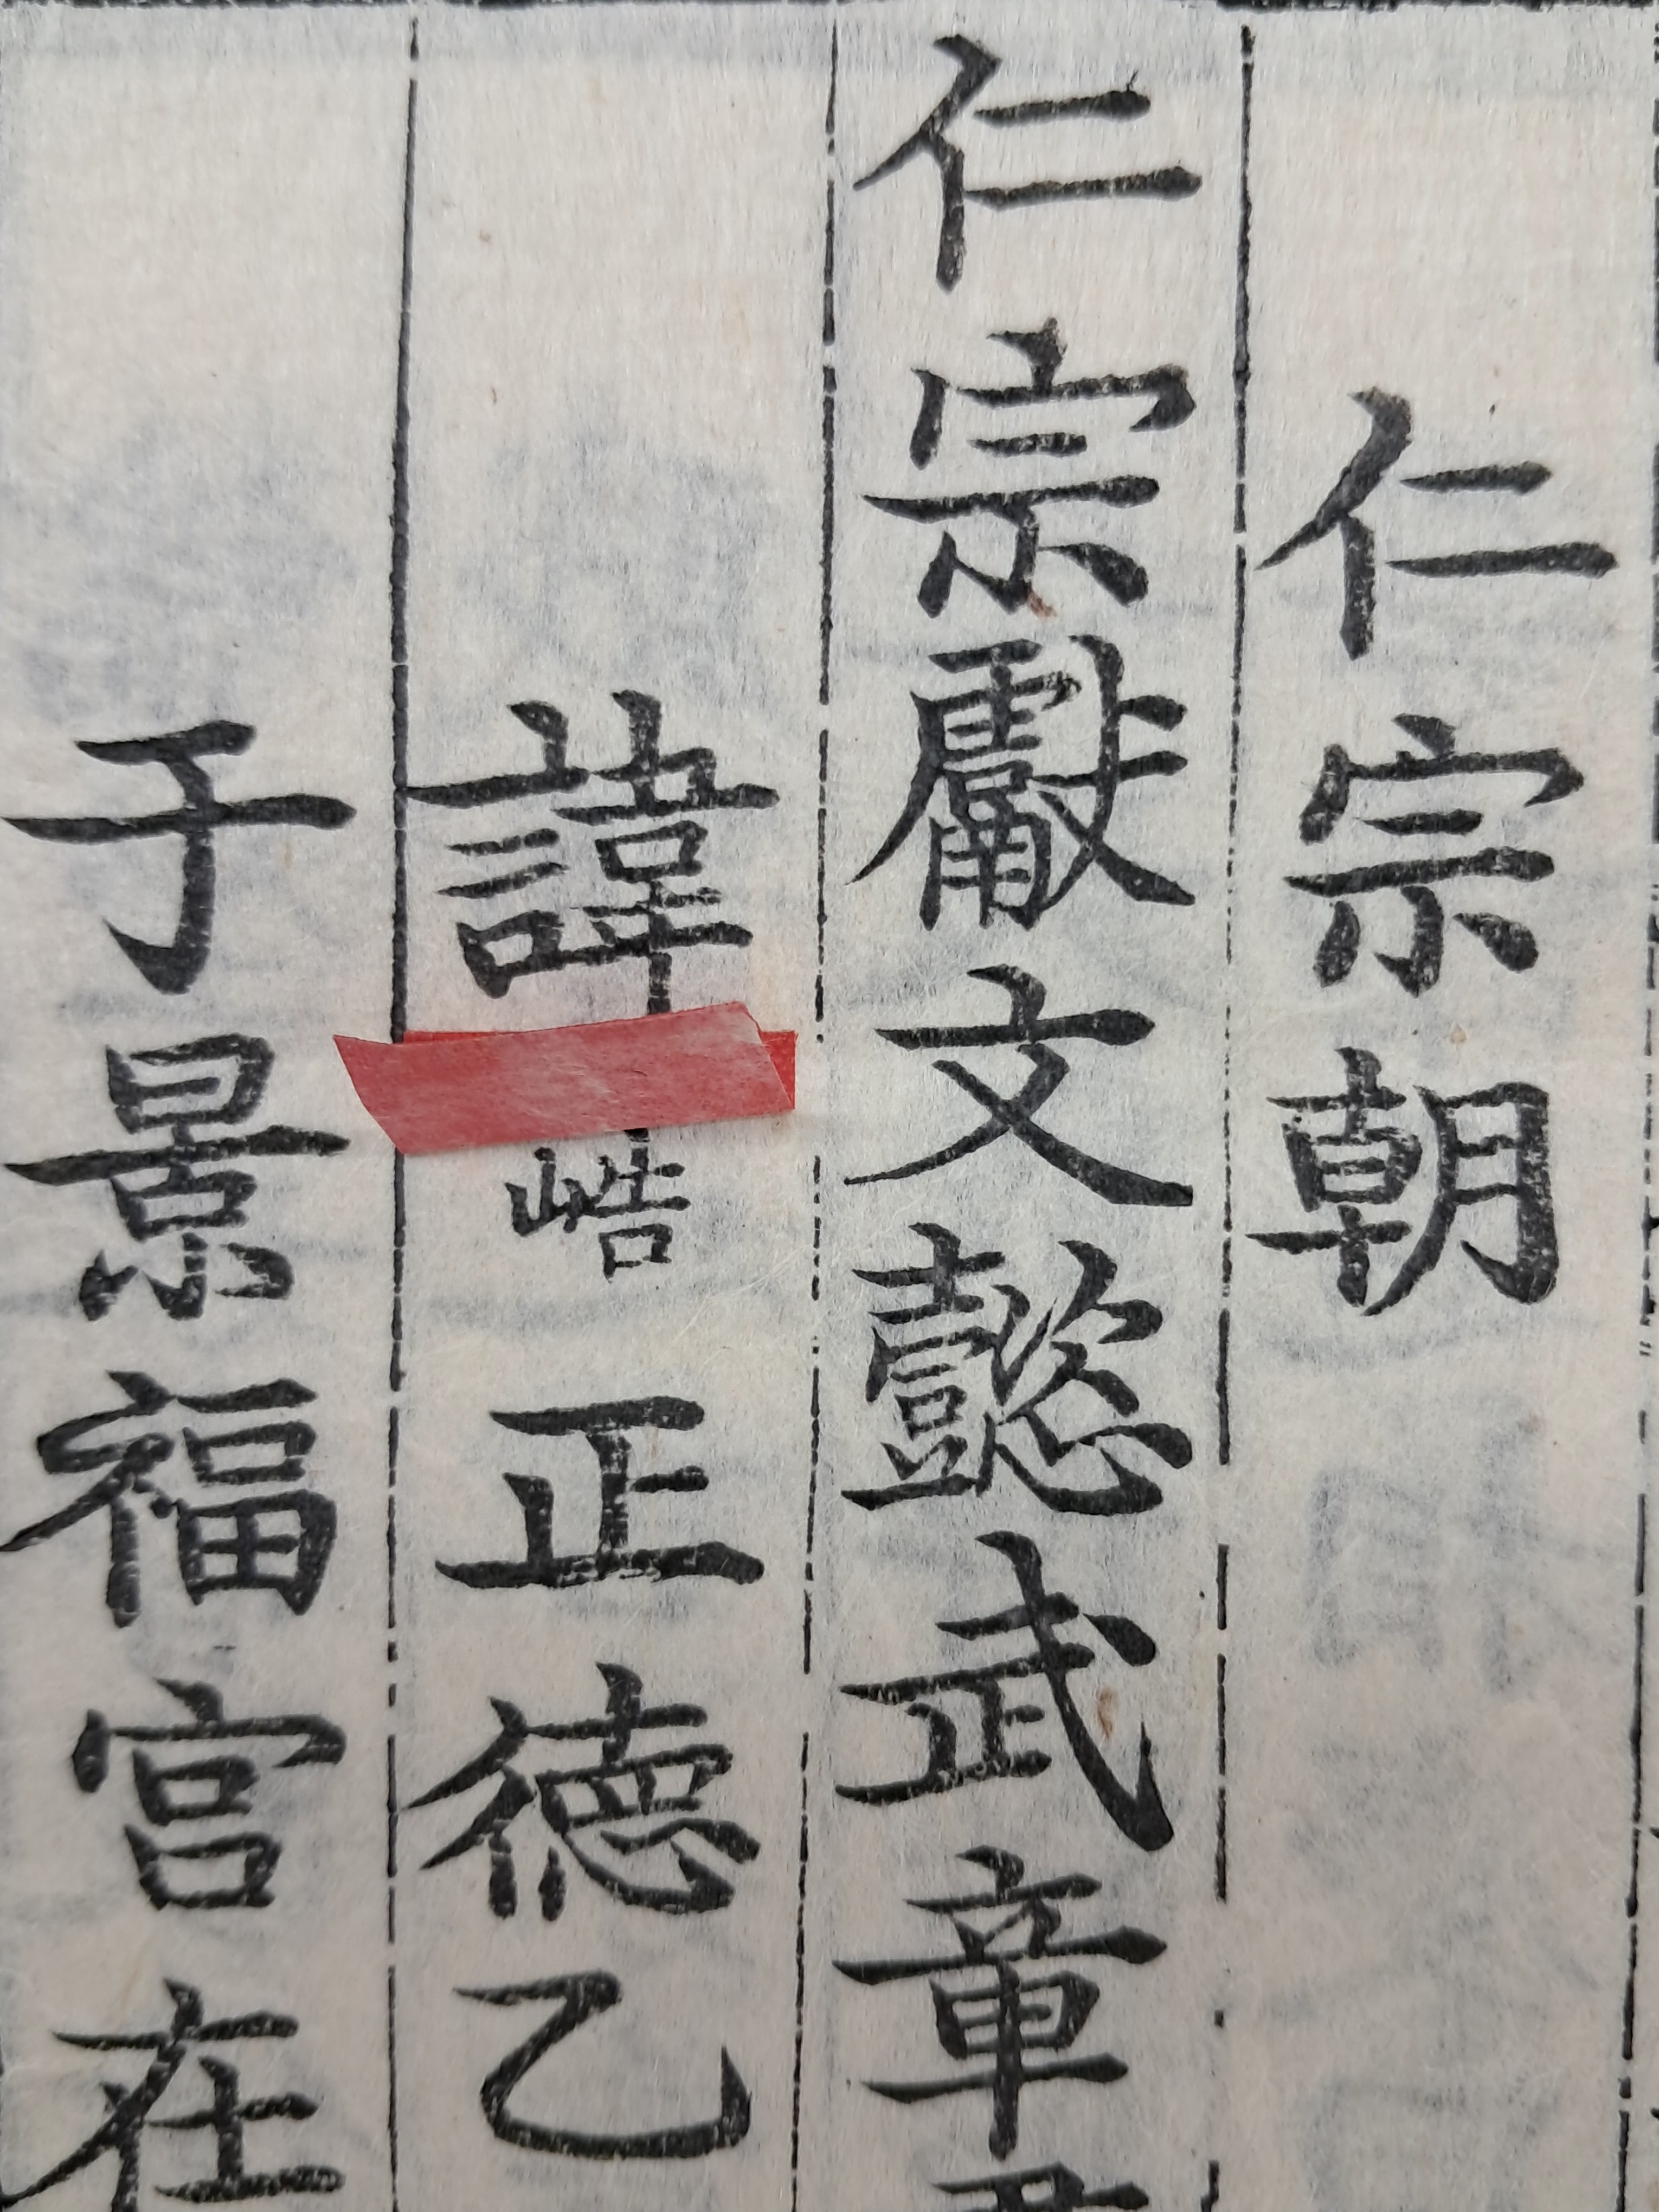 仁宗朝
仁宗獻文懿武章
諱峼正德乙
于景福宮在